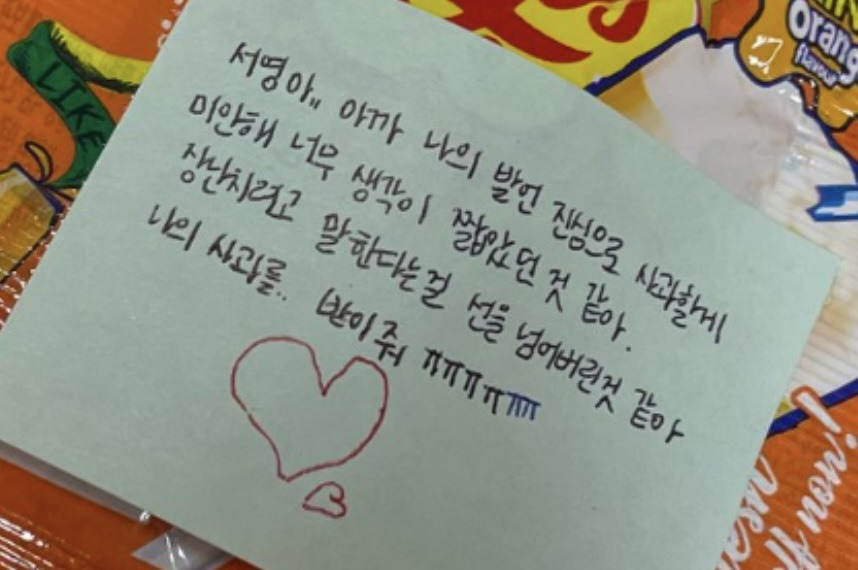 서영아,, 아까 나의 발언 진심으로 사과할게
미안해 너무 생각이 짧았던 것 같아.
장난치려고 말한다는걸 선을 넘어버린것 같아
나의 사과를.. 받아줘 ㅠㅠㅠㅠㅠㅠ
LIKE
Orang
flavour